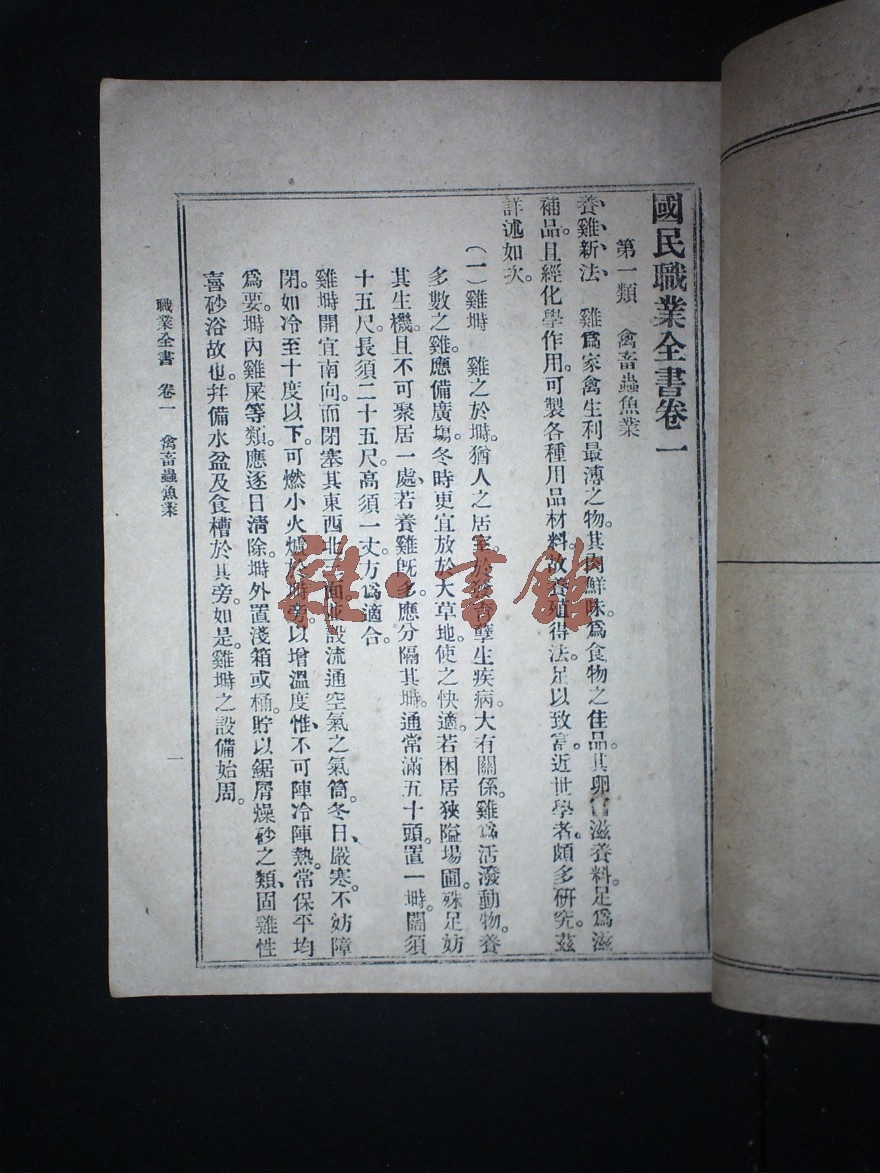 國民職業全書卷一
第一類 禽畜蟲魚業
養雞新法 雞爲家禽生利最溥之物。其肉鮮味。爲食物之佳品。其卵富滋養料。足爲滋
補品。且經化學作用。可製各種用品材料。故養殖得法。足以致富。近世學者。頗多研究。茲
詳述如次。
(一)雞塒 雞之於塒。猶人之居室。於發育孳生疾病。大有關係。雞爲活潑動物。養
多數之雞。應備廣塲。冬時更宜放於大草地。使之快適。若困居狹隘場圃。殊足妨
其生機。且不可聚居一處、若養雞既多。應分隔其塒。通常滿五十頭。置一塒。闊須
十五尺。長須二十五尺。高須一丈。方爲適合。
雞塒開宜南向。而閉塞其東西北三面。並設流通空氣之氣筒。冬日、嚴寒。不妨障
閉。如冷至十度以下。可燃小火爐於塒旁。以增溫度。惟、不可陣冷陣熱。常保平均
爲要。塒內雞屎等類。應逐日清除。塒外置淺箱或桶。貯以鋸屑燥砂之類、固雞性
喜砂浴故也。幷備水盆及食槽於其旁。如是。雞塒之設備始周。
職業全書 卷一 禽畜蟲魚業
一
雜·書館